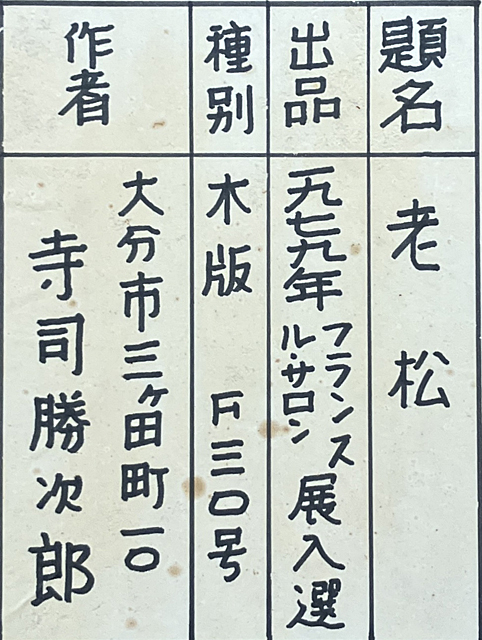 題名
老松
出品
一九七九年
フランス
ル・サロン
展入選
種別
木版 F三〇号
作者
大分市三ヶ田町一〇
寺司勝次郎